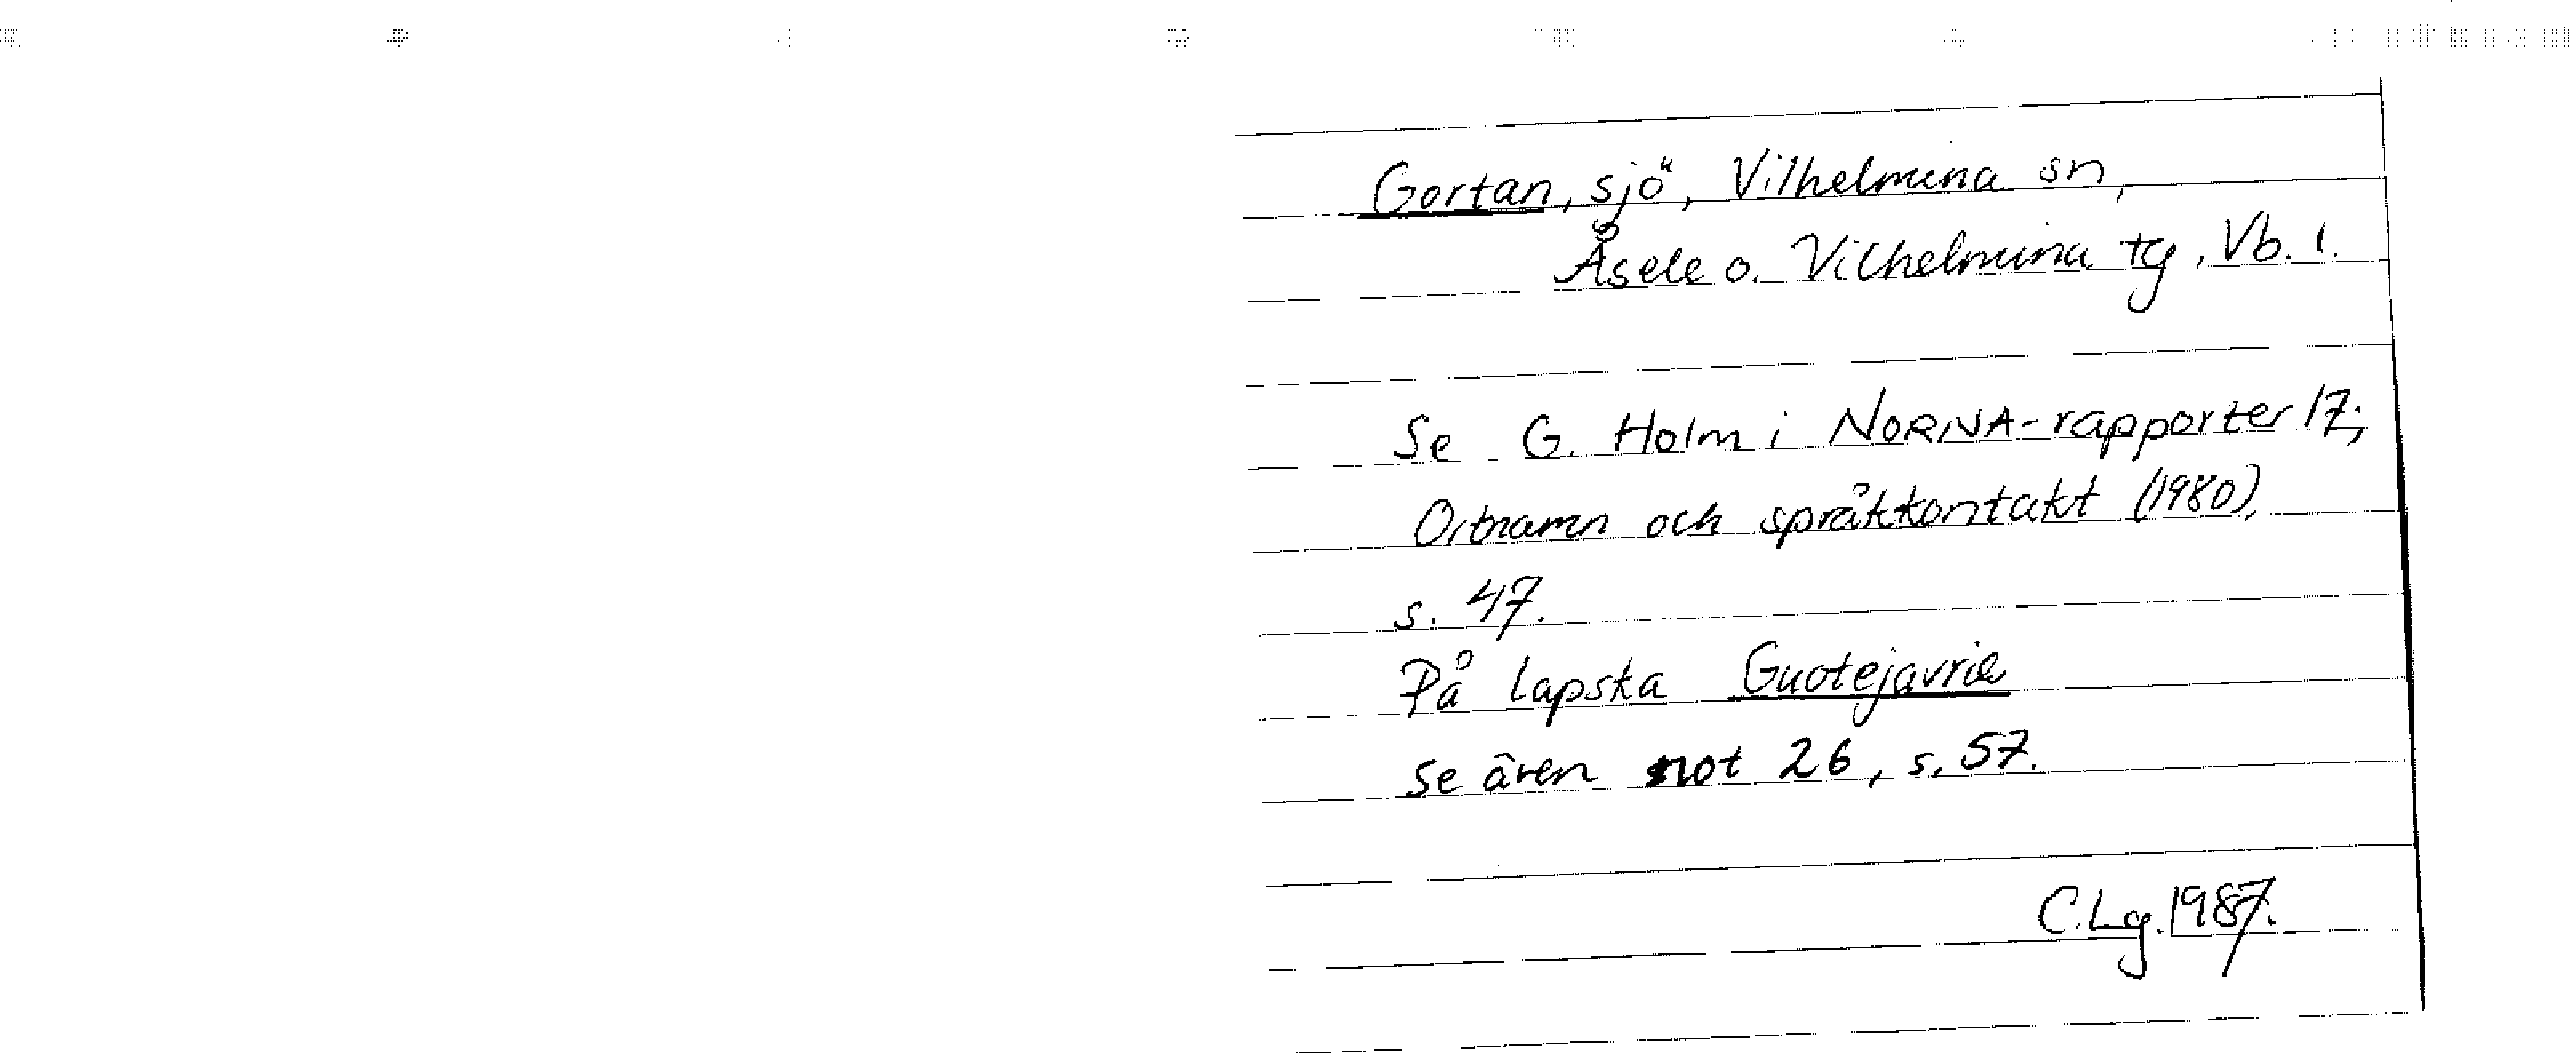 Gortan, sjö, Vilhelmina sn,
Åsele o. Vilhelmina tg, Vb. l.
Se G. Holm i NORNA-rapporter 17;
Ortnamn och språkkontakt (1980),
s. 47.
På lapska Guotejavrie
se även not 26, s. 57.
C.Lg. 1987.